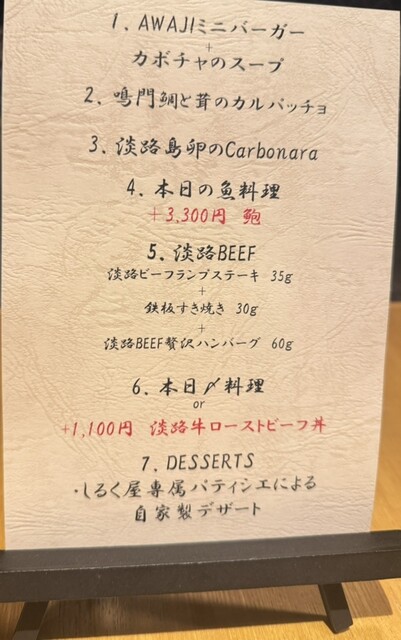 1. AWAJIミニバーガー
+
カボチャのスープ
2. 鳴門鯛と茸のカルパッチョ
3. 淡路島卵のCarbonara
4. 本日の魚料理
+3,300円 鮑
5. 淡路BEEF
淡路ビーフランプステーキ 35g
+
鉄板すき焼き 30g
+
淡路BEEF贅沢ハンバーグ 60g
6. 本日〆料理
or
+1,100円 淡路牛ローストビーフ丼
7. DESSERTS
・しるく屋専属パティシエによる
自家製デザート